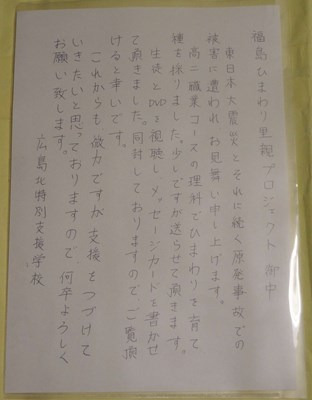 福島ひまわり里親プロジェクト 御中
東日本大震災とそれに続く原発事故での
被害に遭われ お見舞い申し上げます。
高二職業コースの理科でひまわりを育て
種を採りました。少しですが送らせて頂きます。
生徒とDVDを視聴し、メッセージカードを書かせ
て頂きました。同封しておりますので ご覧頂
けると幸いです。
これからも 微力ですが 支援をつづけて
いきたいと思っておりますので 何卒ようしく
お願い致します。
広島北特別支援学校